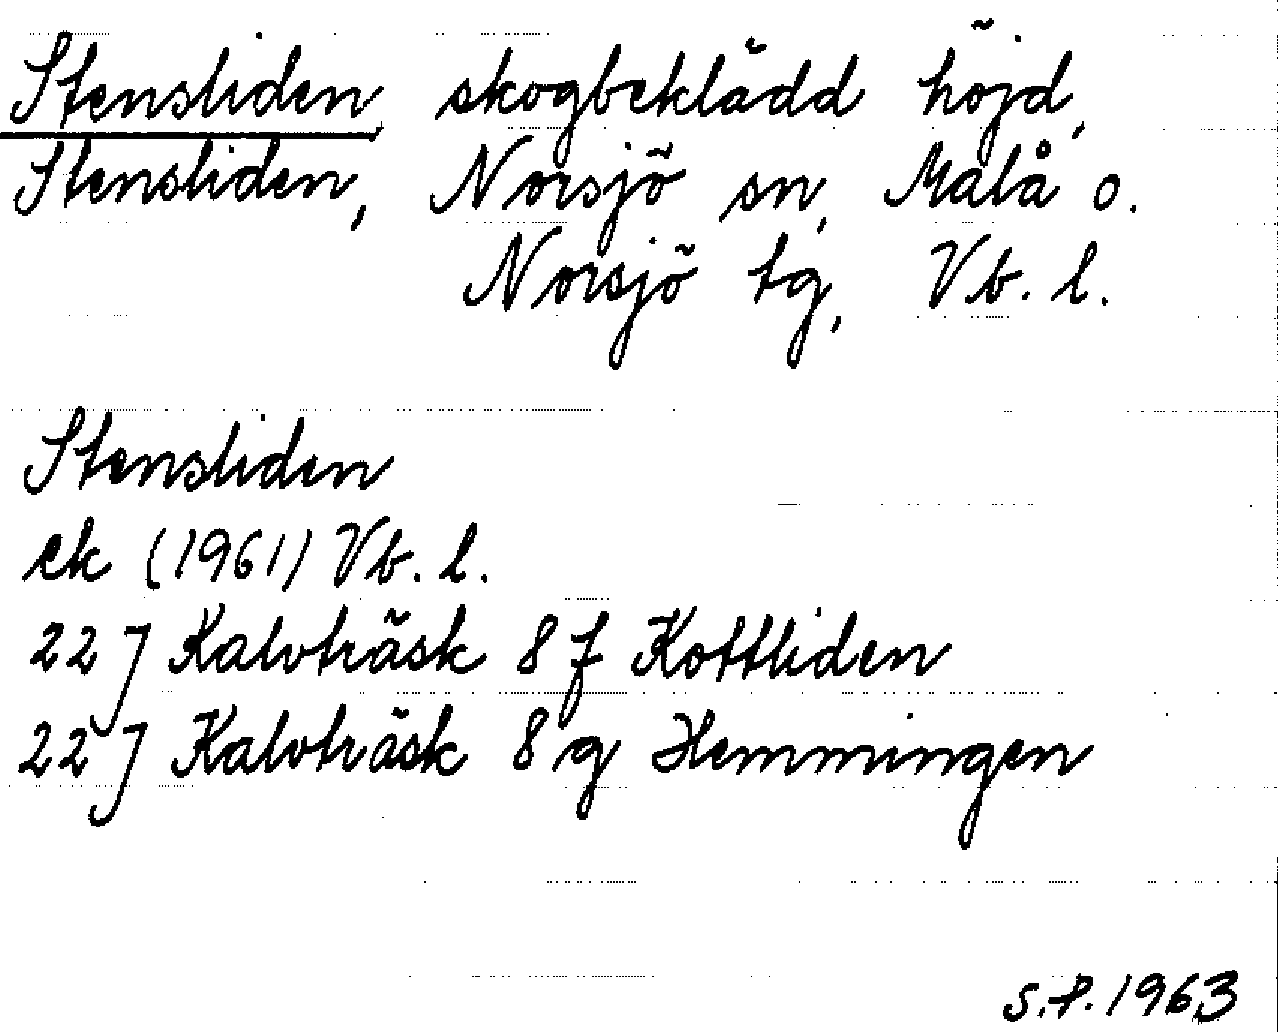 Stensliden, skogbeklädd höjd,
Stensliden, Norsjö sn, Malå o.
Norsjö tg, Vb. l.
Stensliden
ek (1961) Vb. l.
22 J Kalvträsk 8 f Kottliden
22 J Kalvträsk 8 g Hemmingen
S.P. 1963